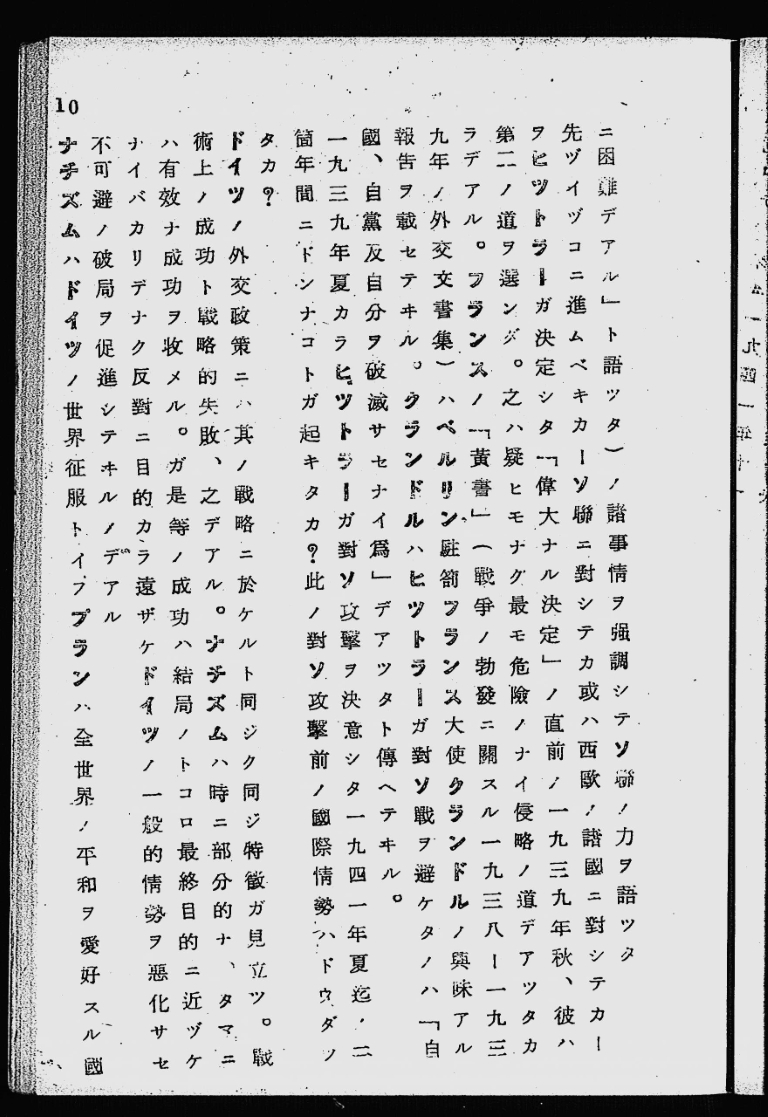 10
ニ困難デアル」ト語ツタ)ノ諸事情ヲ强調シテソ聯ノ力ヲ語ツタ
先ヅイヅコニ進ムベキカーソ聯ニ對シテカ或ハ西歐ノ諸國ニ對シテカー
ヲヒツトラーガ決定シタ「偉大ナル決定」ノ直前ノ一九三九年秋、彼ハ
第二ノ道ヲ選ンダ。之ハ疑ヒモナク最モ危險ノナイ侵略ノ道デアツタカ
ラデアル。フランスノ「黃書」(戰爭ノ勃發ニ關スル一九三八ー一九三
九年ノ外交文書集)ハベルリン駐箚フランス大使クランドルノ興味アル
報告ヲ載セテヰル。クランドルハヒツトラーガ對ソ戰ヲ避ケタノハ「自
國、自黨及自分ヲ破滅サセナイ爲」デアツタト傳ヘテヰル。
一九三九年夏カラヒツトラーガ對ソ攻擊ヲ決意シタ一九四一年夏迄ノ二
箇年間ニドンナコトガ起キタカ?此ノ對ソ攻擊前ノ國際情勢ハドウダツ
タカ?
ドイツノ外交政策ニハ其ノ戰略ニ於ケルト同ジク同ジ特徵ガ見立ツ。戰
術上ノ成功ト戰略的失敗、之デアル。ナチズムハ時ニ部分的ナ、タマニ
ハ有效ナ成功ヲ收メル。ガ是等ノ成功ハ結局ノトコロ最終目的ニ近ヅケ
ナイバカリデナク反對ニ目的カラ遠ザケドイツノ一般的情勢ヲ惡化サセ
不可避ノ破局ヲ促進シテヰルノデアル
ナチズムハドイツノ世界征服トイフプランハ全世界ノ平和ヲ愛好スル國
一九四一年十一